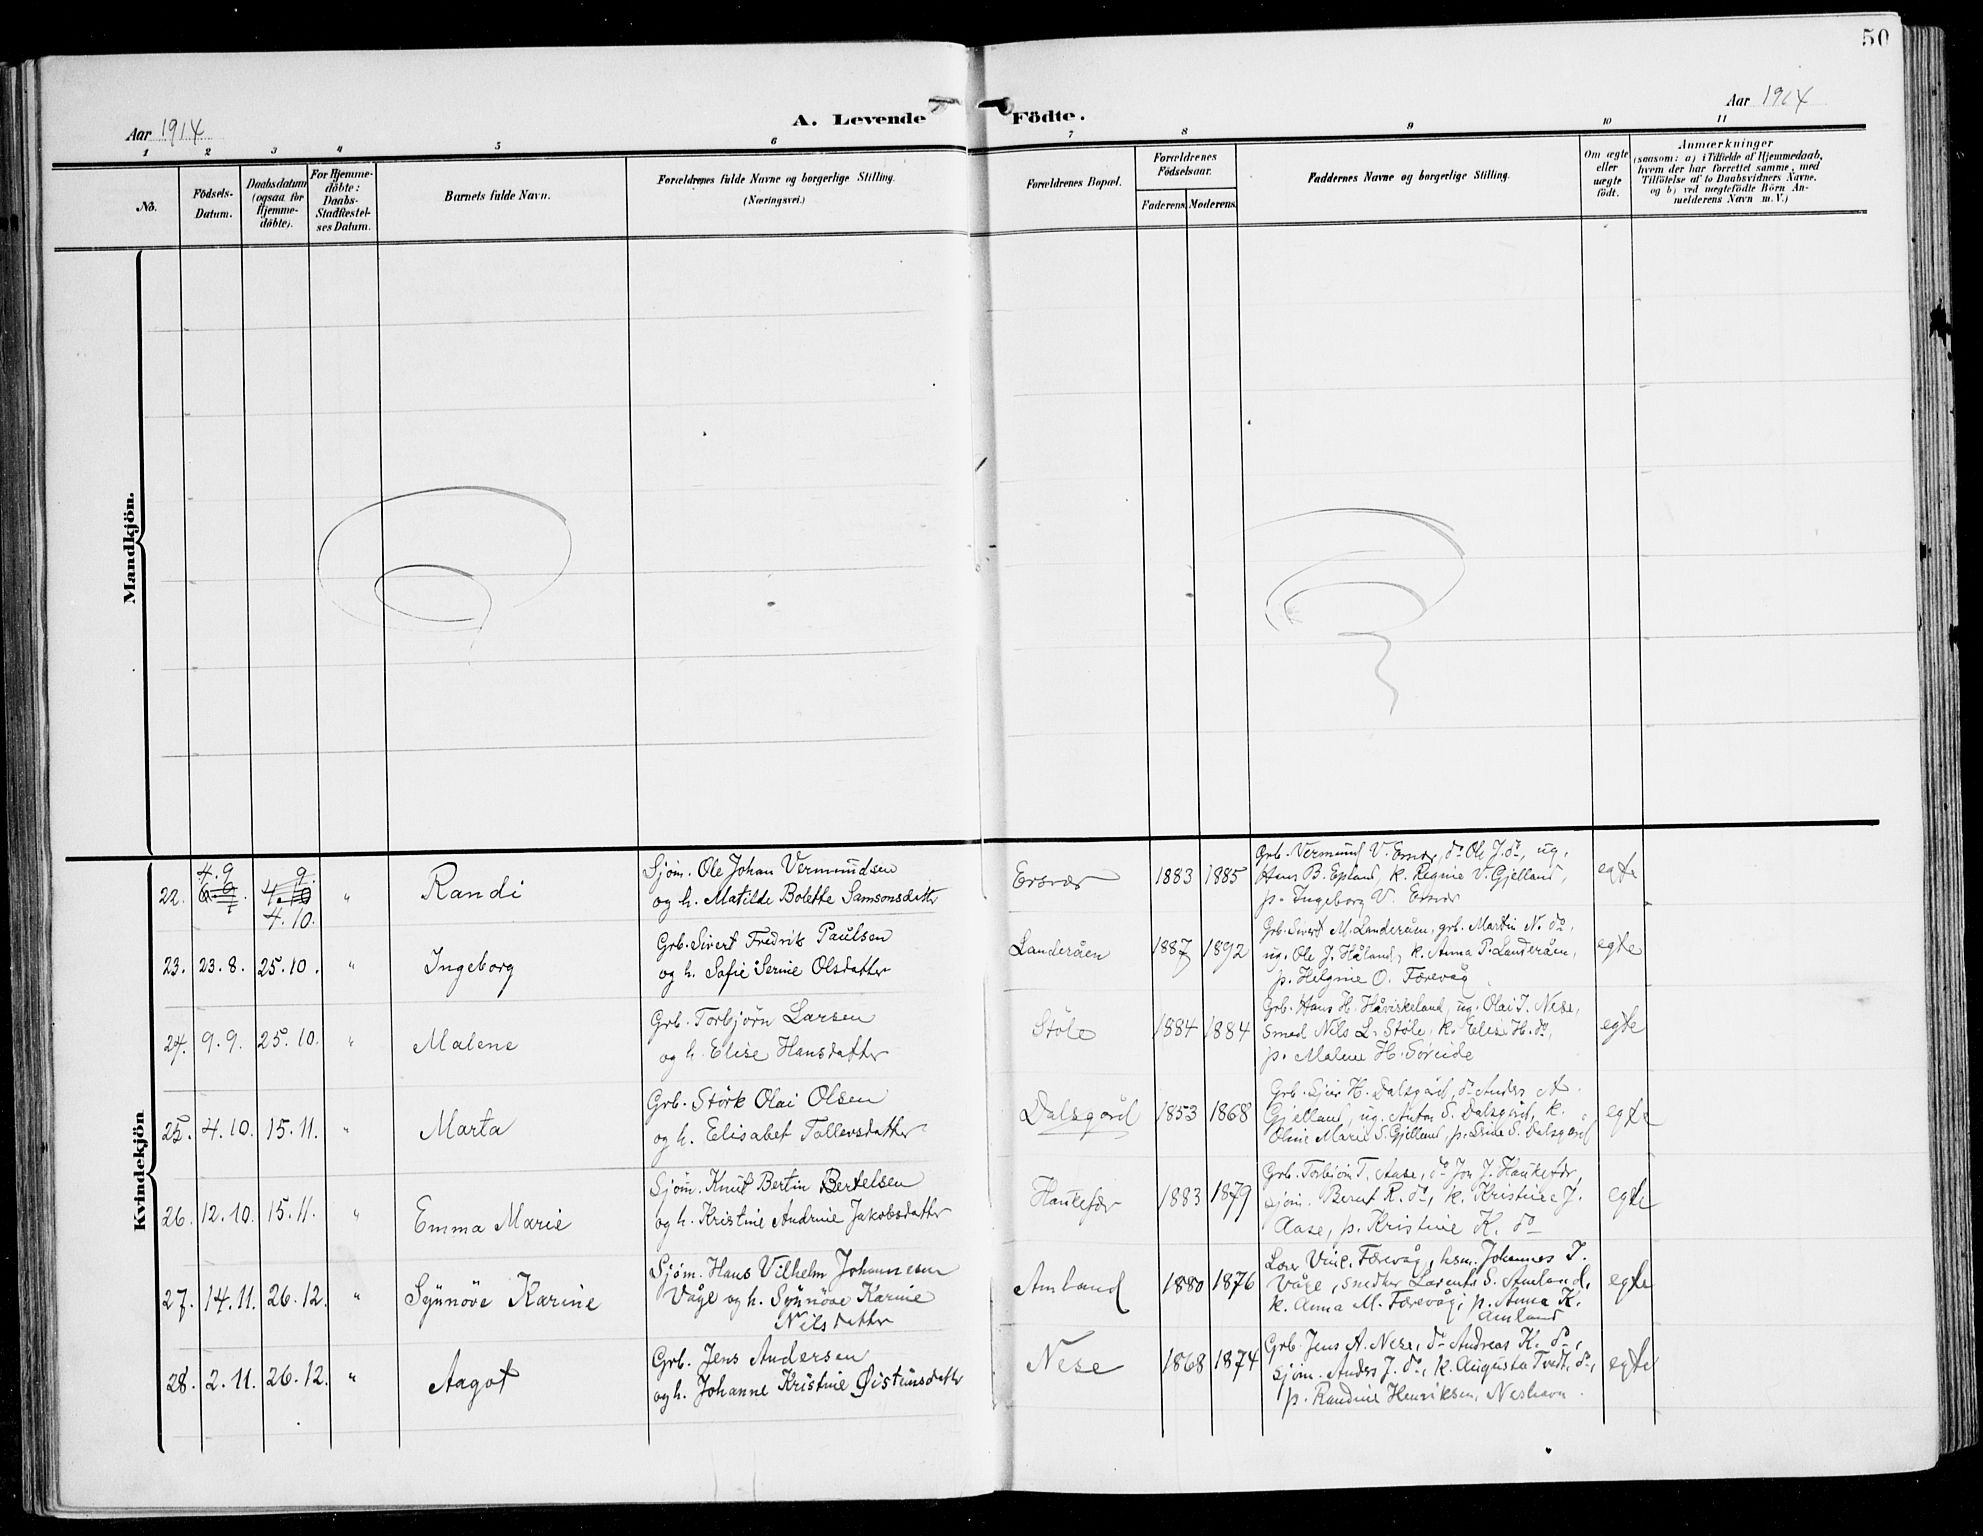 50
Aar 1914
A. Levende Födte.
Aar 1914
1 2 3 4 5 6 7 8 9 10 11
No.
Födsels-
Datum.
Daabsdatum
(ogsaa for
Hjemme-
døbte).
For Hjemme-
døbte:
Daabs-
Stadfæstel-
ses Datum.
Barnets fulde Navn.
Forældrenes fulde Navne og borgerlige Stilling.
(Næringsvei.)
Forældrenes Bopæl.
Forældrenes
Födselsaar.
Faderens. Moderens.
Faddernes Navne og borgerlige Stilling.
Om ægte
eller
uægte
födt.
Anmærkninger
(saasom: a) i Tilfælde af Hjemmedaab,
hvem der har forrettet samme, med
Tilföielse af to Daabsvidners Navne.
og b) ved uægtefödte Börn An-
melderens Navn m. V.)
Mandkjön.
Kvindekjön
22. 4.9 4.10. " Randi
Sjøm. Ole Johan Vermundsen
og h. Matilde Bolette Samsonsdatter
Ersvær 1883 1885
Grb. Vermund V. Ersvær, do Ole J. do, ug.
Hans B. Epland, k. Regine V. Gjelland,
p. Ingeborg V. Ersvær
egte
23. 23.8. 25.10. " Ingeborg
Grb. Sivert Fredrik Paulsen
og h. Sofie Serine Olsdatter
Landeråen 1887 1892
Grb. Sivert M. Landeråen, grb. Martin N. do,
ug. Ole J. Håland, k. Anna P. Landeråen,
p. Helgine O. Færevåg
egte
24. 9.9. 25.10. " Malene
Grb. Torbjörn Larsen
og h. Elise Hansdatter
Støle 1884 1884
Grb. Hans H. Håviskeland, ug. Olai J. Nese,
Smed Nils L. Støle, k. Elise H. do,
p. Malene H. Søreide
egte
25. 4.10. 15.11. " Marta
Grb. Störk Olai Olsen
og h. Elisabet Tollevsdatter
Dalsgård 1853 1868
Grb. Sjur H. Dalsgård, do Anders A.
Gjelland, ug. Anton S. Dalsgård, k.
Oline Marie S. Gjelland, p. S. Dalsgård
egte
26. 12.10. 15.11. " Emma Marie
Sjøm. Knut Bertin Bertelsen
og h. Kristine Andrine Jakobsdatter
Haukefær 1883 1879
Grb. Torbiörn T. Aase, do Jon J. Haukefær,
sjøm. Bernt R. do, k. Kristine J.
Aase, p. Kristine K. do
egte
27. 14.11. 26.12. " Synnöve Karine
Sjöm. Hans Vilhelm Johannesen
Våge og h. Synnöve Karine
Nilsdatter
Amland 1880 1876
Færevåg, hsm. Johannes J.
Våge, snedker Larents S. Amland,
k. Anna M. Færevåg, p. Anna K.
Amland
egte
28. 2.11. 26.12. " Aagot
Grb. Jens Andersen
og h. Johanne Kristine Øisteinsdatter
Nese 1868 1874
Grb. Jens A. Nese, do Andreas K. do,
sjøm. Anders J. do, k. Augusta Tvedt, do,
p. Randine Henriksen, Neshavn.
egte